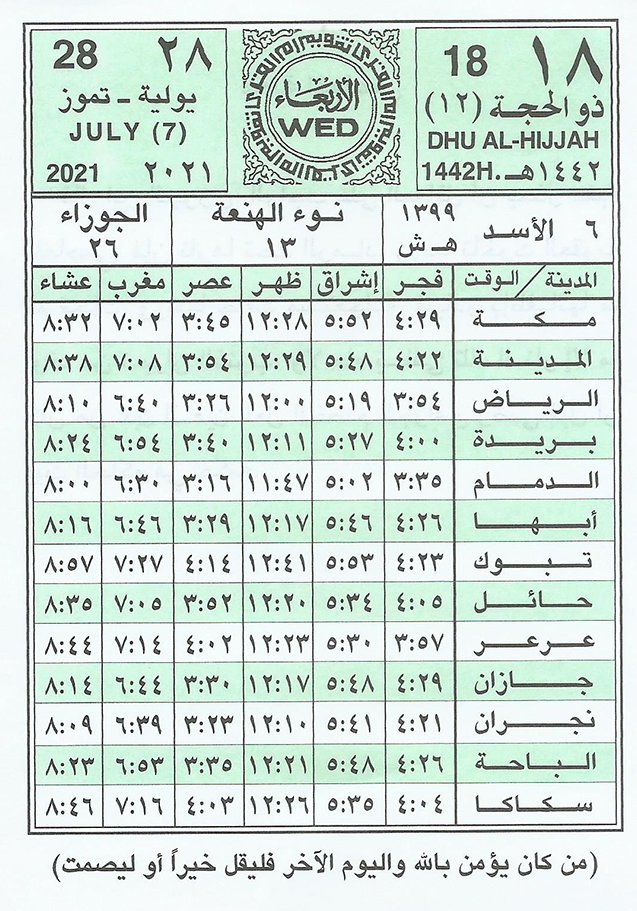 28 ٢٨
يولية - تموز
JULY (7)
2021 ٢٠٢١
الأربعاء
WED
18 ١٨
ذو الحجة (١٢)
DHU AL-HIJJAH
1442H. ١٤٤٢هـ
٦ الأسد ١٣٩٩ هـ ش
نوء الهنعة ١٣
الجوزاء ٢٦
المدينة / الوقت فجر إشراق ظهر عصر مغرب عشاء
مكة ٤:٢٩ ٥:٥٢ ١٢:٢٨ ٣:٤٥ ٧:٠٢ ٨:٣٢
المدينة ٤:٢٢ ٥:٤٨ ١٢:٢٩ ٣:٥٤ ٧:٠٨ ٨:٣٨
الرياض ٣:٥٤ ٥:١٩ ١٢:٠٠ ٣:٢٦ ٦:٤٠ ٨:١٠
بريدة ٤:٠٠ ٥:٢٧ ١٢:١١ ٣:٤٠ ٦:٥٤ ٨:٢٤
الدمام ٣:٣٥ ٥:٠٢ ١١:٤٧ ٣:١٦ ٦:٣٠ ٨:٠٠
أبها ٤:٢٦ ٥:٤٦ ١٢:١٧ ٣:٢٩ ٦:٤٦ ٨:١٦
تبوك ٤:٢٣ ٥:٥٣ ١٢:٤١ ٤:١٤ ٧:٢٧ ٨:٥٧
حائل ٤:٠٥ ٥:٣٤ ١٢:٢٠ ٣:٥٢ ٧:٠٥ ٨:٣٥
عرعر ٣:٥٧ ٥:٣٠ ١٢:٢٣ ٤:٠٢ ٧:١٤ ٨:٤٤
جازان ٤:٢٩ ٥:٤٨ ١٢:١٧ ٣:٣٠ ٦:٤٤ ٨:١٤
نجران ٤:٢١ ٥:٤١ ١٢:١٠ ٣:٢٣ ٦:٣٩ ٨:٠٩
الباحة ٤:٢٦ ٥:٤٨ ١٢:٢١ ٣:٣٥ ٦:٥٣ ٨:٢٣
سكاكا ٤:٠٤ ٥:٣٥ ١٢:٢٦ ٤:٠٣ ٧:١٦ ٨:٤٦
(من كان يؤمن بالله واليوم الآخر فليقل خيراً أو ليصمت)